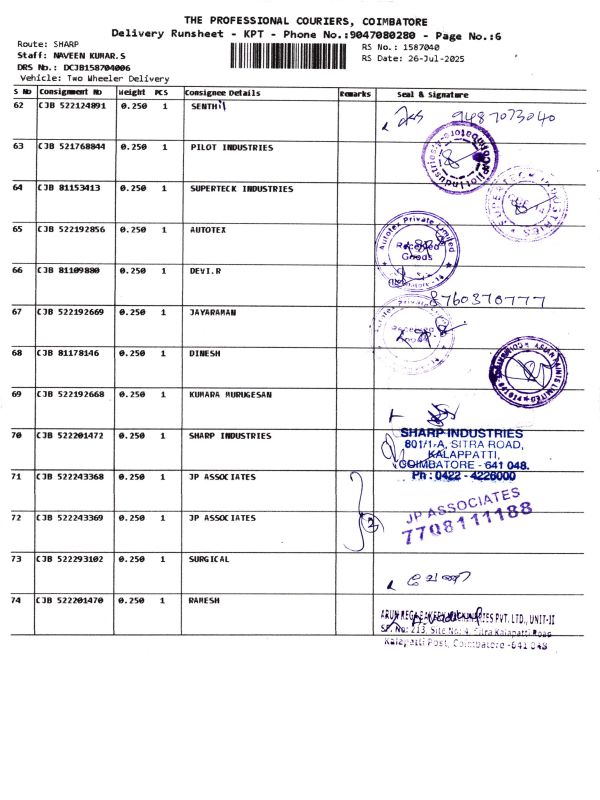 THE PROFESSIONAL COURIERS, COIMBATORE
Delivery Runsheet - KPT - Phone No.:9047080280 - Page No.:6
Route: SHARP
RS No.: 1587040
Staff: NAVEEN KUMAR.S
RS Date: 26-Jul-2025
DRS No.: DCJB158704006
Vehicle: Two Wheeler Delivery
S No Consignment No Weight PCS Consignee Details Remarks Seal & Signature
62 CJB 522124891 0.250 1 SENTHIL
9487073040
63 CJB 521768844 0.250 1 PILOT INDUSTRIES
64 CJB 81153413 0.250 1 SUPERTECK INDUSTRIES
65 CJB 522192856 0.250 1 AUTOTEX
Autotex Private Limited
Received
Goods
66 CJB 81109880 0.250 1 DEVI.R
8760370777
67 CJB 522192669 0.250 1 JAYARAMAN
68 CJB 81178146 0.250 1 DINESH
69 CJB 522192668 0.250 1 KUMARA MURUGESAN
70 CJB 522201472 0.250 1 SHARP INDUSTRIES
SHARP INDUSTRIES
801/1-A, SITRA ROAD,
KALAPPATTI,
COIMBATORE - 641 048.
Ph : 0422 - 4226000
71 CJB 522243368 0.250 1 JP ASSOCIATES
72 CJB 522243369 0.250 1 JP ASSOCIATES
2
JP ASSOCIATES
7708111188
73 CJB 522293102 0.250 1 SURGICAL
74 CJB 522201470 0.250 1 RAMESH
PVT. LTD., UNIT-II
SF. No: 213, Site No: 4, Sitra Kalapatti Road
Kalapatti Post, Coimbatore -641 048